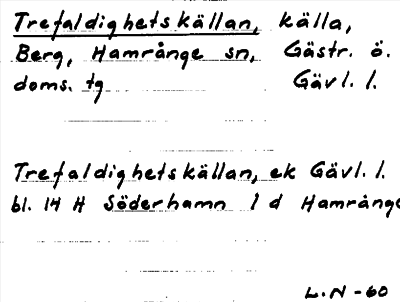 Trefaldighetskällan, källa,
Berg, Hamrånge sn, Gästr. ö.
doms. tg Gävl. l.
Trefaldighetskällan, ek Gävl. l.
bl. 14 H Söderhamn 1 d Hamrånge
L.N -60